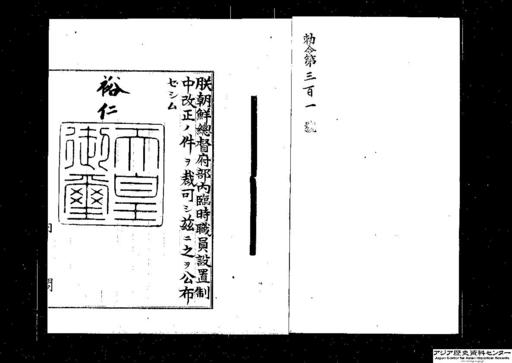 勅令第三百一號
朕朝鮮總督府部內臨時職員設置制
中改正ノ件ヲ裁可シ茲ニ之ヲ公布
セシム
裕仁
天皇
御璽
アジア歴史資料センター
Japan Center for Asian Historical Records